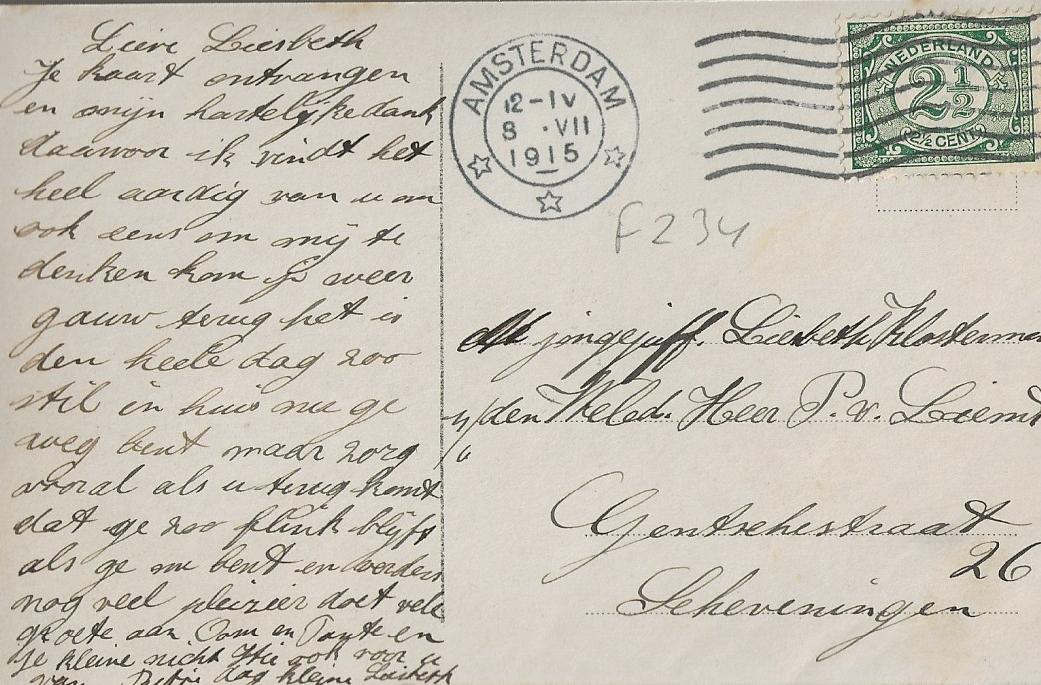 Lieve Liesbeth
Je kaart ontvangen
en mijn hartelijke dank
daarvoor ik vindt het
heel aardig van u om
ook eens om mij te
denken kom je weer
gauw terug het is
den heele dag zoo
stil in huis nu ge
weg bent maar zorg
vooral als u terug komt
dat ge zoo flink blijft
als ge nu bent en verders
nog veel pleizier doet vele
groete aan Oom en Tante en
je kleine nicht ook voor u
van dag kleine Liesbeth
AMSTERDAM
12-IV
8 ·VII
1915
NEDERLAND
2 1/2
(2½ CENT)
F234
jongejuff. Liesbeth Klosterman
den Weled. Heer P. v. Liemt
Gentschestraat
26
Scheveningen